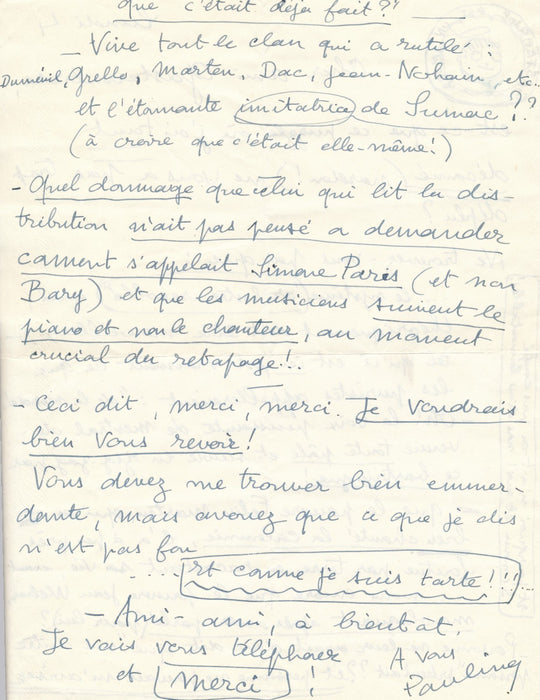 que c'était déjà fait?"
— Vive tout le clan qui a rutilé :
Duménil, Grello, Marten, Dac, Jean-Nohain, etc..
et l'étonnante imitatrice de Sumac ??
(à croire que c'était elle-même!)
- Quel dommage que celui qui lit la dis-
tribution n'ait pas pensé à demander
comment s'appelait Simone Paris (et non
Bary) et que les musiciens suivent le
piano et non le chanteur, au moment
crucial du retapage!..
- Ceci dit, merci, merci. Je voudrais
bien vous revoir!
Vous devez me trouver bien emmer-
dante, mais avouez que ce que je dis
n'est pas fou
..... et comme je suis tarte!!!...
— Ami-ami, à bientôt.
Je vais vous téléphoner
et merci !
A. von
Pauling